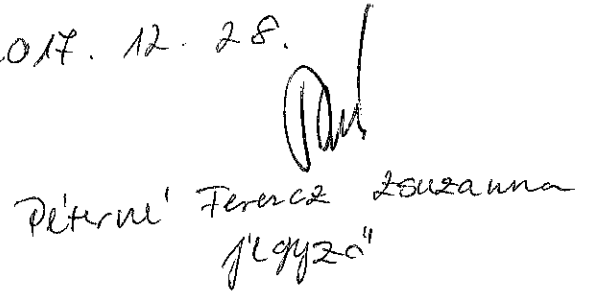 2017. 12. 28.
Péterné Ferencz Zsuzsanna
jegyző